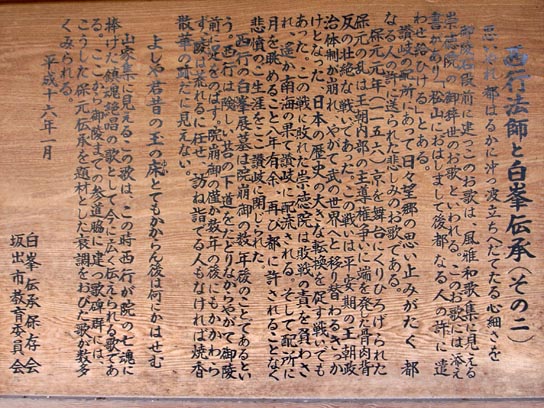 西行法師と白峯伝承(その二)
思いやれ都はるかに沖つ波立ちへだてたる心細さを
御陵石段前に建つこのお歌は、風雅和歌集に見える
崇徳院の御辞世のお歌といわれる。このお歌には添え
書きがあり、松山におはしまして後都なる人の許に遣
わせ給ひけるとある。
讃岐の配所にあって日々望郷の思い止みがたく、都
なる人の許へ送られた悲しみのお歌である。
保元元年(一一五六)京を舞台にくりひろげられた
保元の乱は王朝内部の主導権争いに端を発した骨肉背
反の壮絶な戦いであった。この戦いは平安期の王朝政
治体制が崩れ、やがて武の世界へと移り替わるきっか
けとなった、日本の歴史の大きな転換を促す戦いでも
あった。この戦に敗れた崇徳院は敗戦の責を負わさ
れ、遥か南海の果て讃岐に配流される。そして配所に
月を眺めること八年有余、再び都に許されることなく
悲憤のご生涯をここ讃岐に閉じられた。
西行の白峯展墓は院崩御の数年後のことであるとい
う。西行は険しい苔の下道をたどりながらやがて御陵
前に足をのばす。院崩御の僅か数年の後にもかかわら
ず、廟は荒れるに任せ、訪ね詣でる人もなければ焼香
散華の跡だに見えない。
よしや君昔の玉の床とてもかからん後は何にかはせむ
山家集に見えるこの歌は、この時西行が院の亡魂に
捧げた鎮魂絶唱の歌として今になお伝えられる歌であ
る。ここから御陵までの参道脇に建つ歌碑群には、
こうした保元伝承を題材とした哀調をおびた歌が数多
くみられる。
平成十六年一月
白峯伝承保存会
坂出市教育委員会